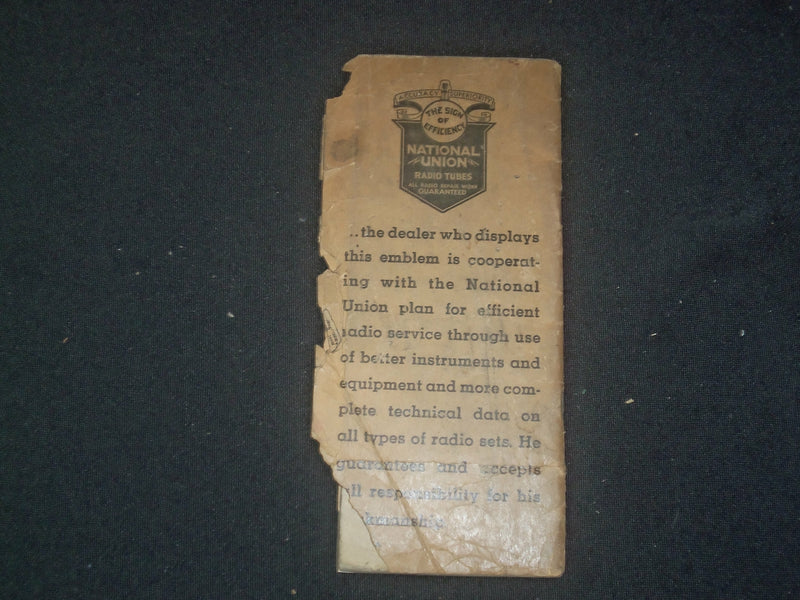 ACCURACY SUPERIORITY
THE SIGN
OF
EFFICIENCY
NATIONAL
UNION
RADIO TUBES
ALL RADIO REPAIR WORK
GUARANTEED
..the dealer who displays
this emblem is cooperat-
ing with the National
Union plan for efficient
radio service through use
of better instruments and
equipment and more com-
plete technical data on
all types of radio sets. He
guarantees and accepts
all responsibility for his
kmanship